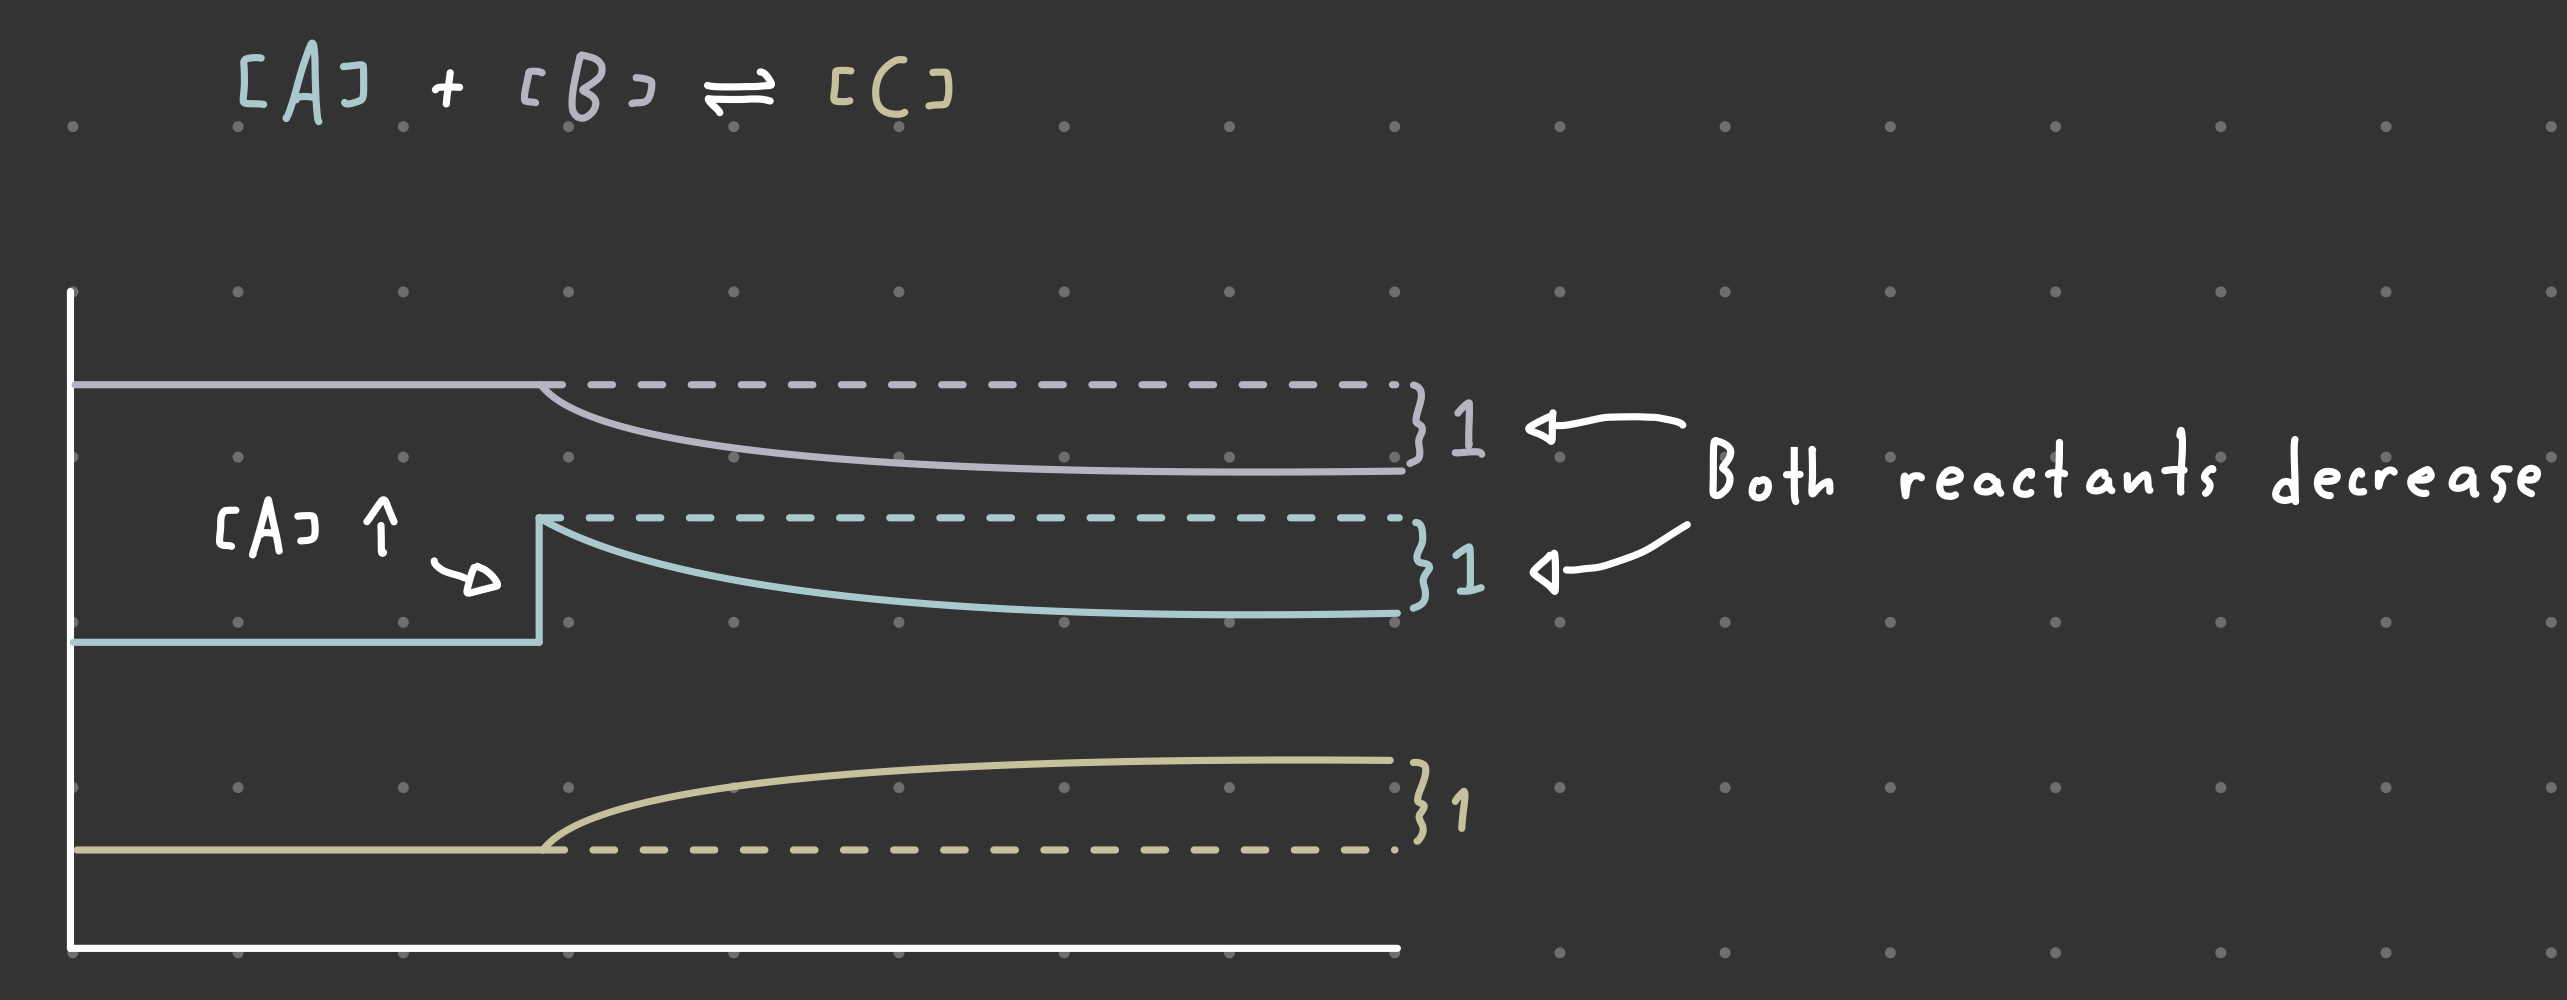 [A] + [B] ⇌ [C]
} 1
Both reactants decrease
[A] ↑
} 1
} 1